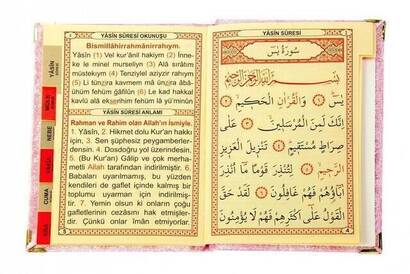 YÂSÎN SÛRESİ OKUNUŞU
Bismillâhirrahmânirrahıym.
Yâsîn (1) Vel kur'ânil hakiym (2) İnne-
ke le minel murseliyn (3) Alâ sırâtım
müstekıym (4) Tenziylel aziyzir rahıym
(5) Li tünzira kavmem mâ ünzira âbâ-
ühüm fehüm ğâfilûn (6) Le kad hakkal
kavlü alâ ekserihim fehüm lâ yü'minûn
YÂSÎN SÛRESİ ANLAMI
Rahman ve Rahim olan Allah'ın ismiyle.
1. Yâsîn, 2. Hikmet dolu Kur'an hakkı
için, 3. Sen şüphesiz peygamberler-
densin. 4. Dosdoğru yol üzerindesin.
5. (Bu Kur'an) Gâlip ve çok merha-
metli Allah tarafından indirilmiştir. 6.
Babaları uyarılmamış, bu yüzden
kendileri de gaflet içinde kalmış bir
toplumu uyarman için indirilmiş-
tir. 7. Yemin olsun ki onların çoğu
gafletlerinin cezasını hak etmişler-
dir. Çünkü onlar iman etmiyorlar.
5
YÂSÎN
MÜLK
NEBE
CUMA
YÂSÎN SÛRESİ
سُورَةُ يٰسٓ
بِسْمِ اللّٰهِ الرَّحْمٰنِ الرَّحِيمِ
يٰسٓ ﴿١﴾ وَالْقُرْاٰنِ الْحَكِيمِ ﴿٢﴾
اِنَّكَ لَمِنَ الْمُرْسَلِينَ ﴿٣﴾ عَلٰى
صِرَاطٍ مُسْتَقِيمٍ ﴿٤﴾ تَنْزِيلَ الْعَزِيزِ
الرَّحِيمِ ﴿٥﴾ لِتُنْذِرَ قَوْمًا مَٓا اُنْذِرَ
اٰبَٓاؤُهُمْ فَهُمْ غَافِلُونَ ﴿٦﴾ لَقَدْ حَقَّ
الْقَوْلُ عَلٰٓى اَكْثَرِهِمْ فَهُمْ لَا يُؤْمِنُونَ
4